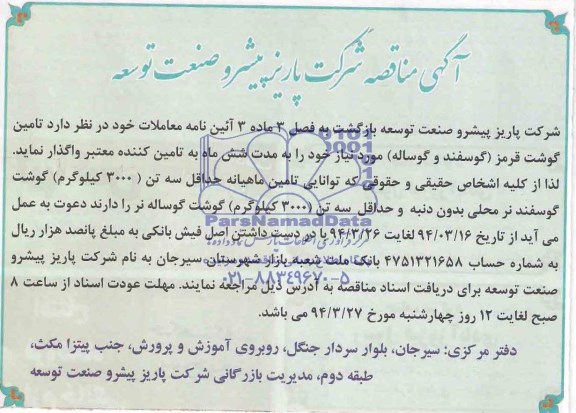 آگهی مناقصه شرکت پاریز پیشرو صنعت توسعه
شرکت پاریز پیشرو صنعت توسعه بازگشت به فصل ۳ ماده ۳ آئین نامه معاملات خود در نظر دارد تامین
گوشت قرمز (گوسفند و گوساله) مورد نیاز خود را به مدت شش ماه به تامین کننده معتبر واگذار نماید.
لذا از کلیه اشخاص حقیقی و حقوقی که توانایی تامین ماهیانه حداقل سه تن ( ۳۰۰۰ کیلوگرم) گوشت
گوسفند نر محلی بدون دنبه و حداقل سه تن (۳۰۰۰ کیلوگرم) گوشت گوساله نر را دارند دعوت به عمل
می آید از تاریخ ۹۴/۰۳/۱۶ لغایت ۹۴/۳/۲۶ با در دست داشتن اصل فیش بانکی به مبلغ پانصد هزار ریال
به شماره حساب ۴۷۵۱۳۲۱۶۵۸ بانک ملت شعبه بازار شهرستان سیرجان به نام شرکت پاریز پیشرو
صنعت توسعه برای دریافت اسناد مناقصه به آدرس ذیل مراجعه نمایند. مهلت عودت اسناد از ساعت ۸
صبح لغایت ۱۲ روز چهارشنبه مورخ ۹۴/۳/۲۷ می باشد.
دفتر مرکزی: سیرجان، بلوار سردار جنگل، روبروی آموزش و پرورش، جنب پیتزا مکث،
طبقه دوم، مدیریت بازرگانی شرکت پاریز پیشرو صنعت توسعه
ParsNamadData
۰۲۱-۸۸۳۴۹۶۷۰-۵